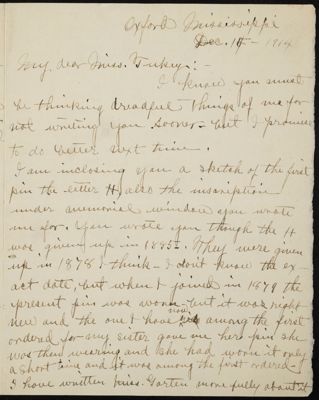 Oxford Mississippi
Dec. 11 - 1914
My dear Miss. Tukey: -
I know you must
be thinking dreadful things of me for
not writing you sooner - but I promise
to do better next time.
I am inclosing you a sketch of the first
pin the letter H, also the inscription
under memorial window you wrote
me for. You wrote you though the H
was given up in 1885. They were given
up in 1878 I think - I don't know the ex-
act date, but when I joined in 1879 the
present pin was worn - but it was right
new and the one I have now among the first
ordered for my sister gave me hers pin she
was then wearing and she had worn it only
a short time and it was among the first ordered -
I have written Miss. Garten more fully about it